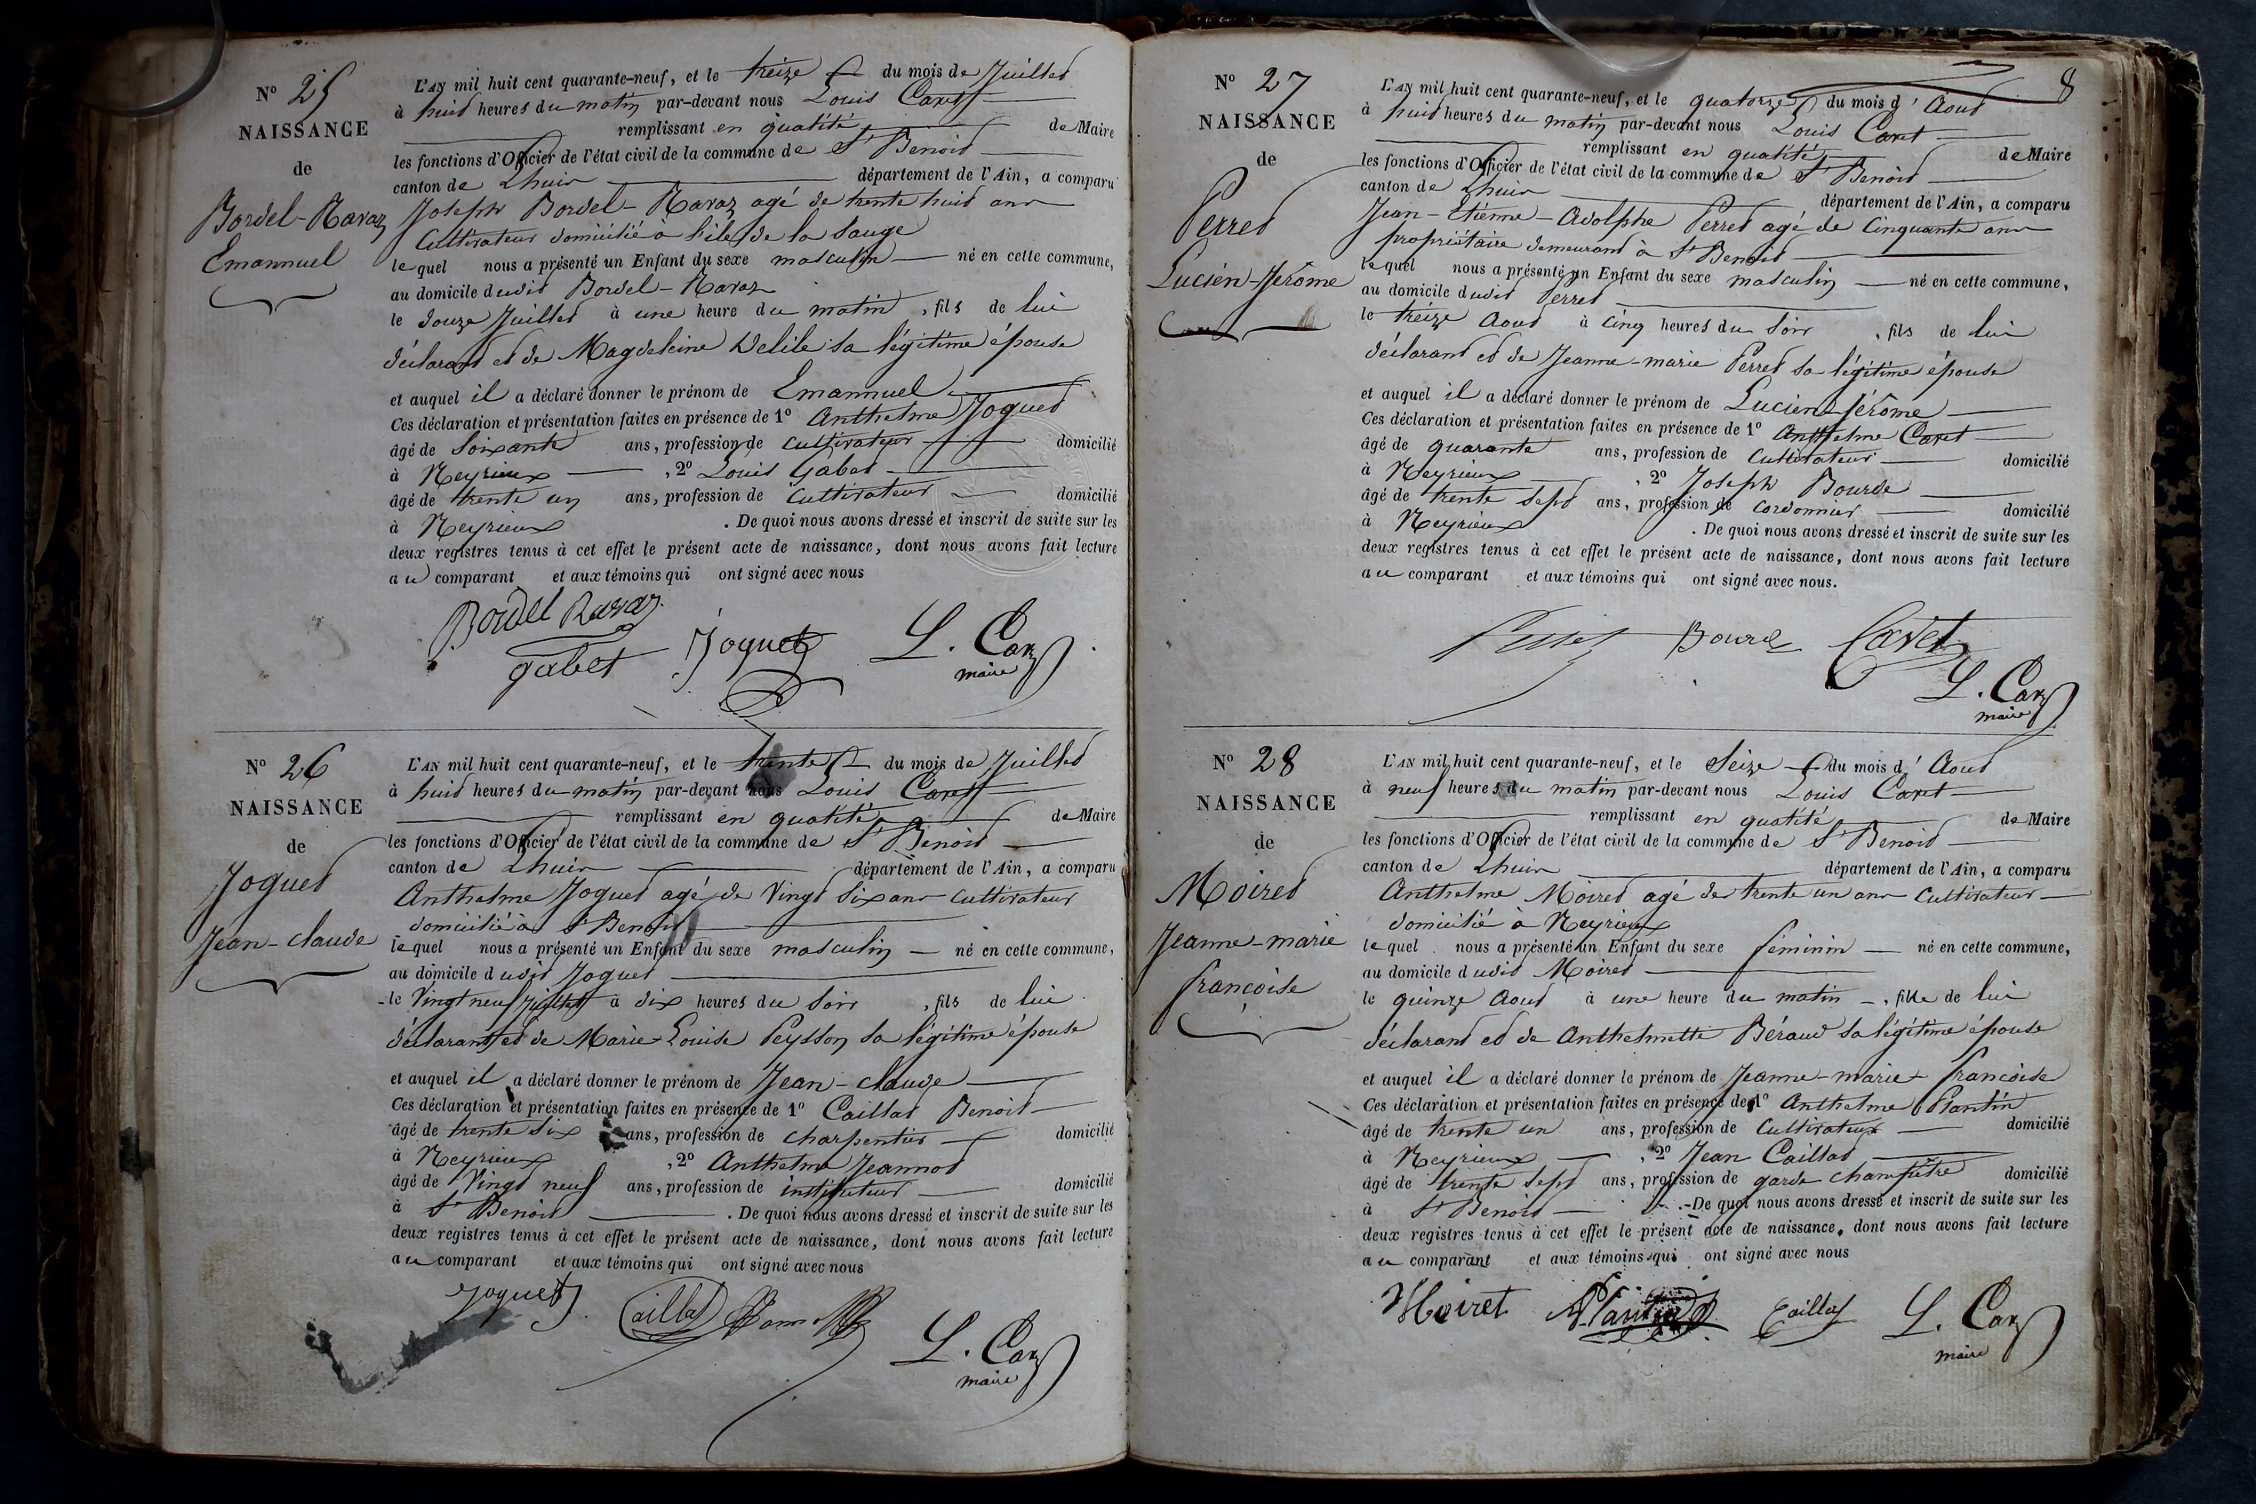 N° 25
NAISSANCE
de
Bordel-Ravaz
Emannuel
L'AN mil huit cent quarante-neuf, et le treize du mois de Juillet
à huit heures du matin par-devant nous Louis Caret
remplissant en qualité de Maire
les fonctions d'Officier de l'état civil de la commune de St Benoit
canton de Lhuis département de l'Ain, a comparu
Joseph Bordel-Ravaz agé de trente huit ans
Cultivateur domicilié à l'île de la Sauge
lequel nous a présenté un Enfant du sexe masculin né en cette commune,
au domicile dudit Bordel-Ravaz
le douze Juillet à une heure du matin, fils de lui
déclarant et de Magdeleine Delile sa légitime épouse
et auquel il a déclaré donner le prénom de Emannuel
Ces déclaration et présentation faites en présence de 1° Anthelme Joguet
âgé de Soixante ans, profession de cultivateur domicilié
à Neyrieux, 2° Louis Gabet
âgé de trente un ans, profession de cultivateur domicilié
à Neyrieux. De quoi nous avons dressé et inscrit de suite sur les
deux registres tenus à cet effet le présent acte de naissance, dont nous avons fait lecture
au comparant et aux témoins qui ont signé avec nous
Bordel Ravaz
gabet Joguet L. Caret
maire
N° 26
NAISSANCE
de
Joguet
Jean-claude
L'AN mil huit cent quarante-neuf, et le trente du mois de Juillet
à huit heures du matin par-devant nous Louis Caret
remplissant en qualité de Maire
les fonctions d'Officier de l'état civil de la commune de St Benoit
canton de Lhuis département de l'Ain, a comparu
Anthelme Joguet agé de Vingt Six ans cultivateur
domicilié à St Benoit
lequel nous a présenté un Enfant du sexe masculin né en cette commune,
au domicile dudit Joguet
le Vingt neuf juillet à dix heures du Soir, fils de lui
déclarant et de Marie-Louise Peysson sa légitime épouse
et auquel il a déclaré donner le prénom de Jean-claude
Ces déclaration et présentation faites en présence de 1° Caillat Benoit
âgé de trente Six ans, profession de charpentier domicilié
à Neyrieux, 2° Anthelme Jeannot
âgé de Vingt neuf ans, profession de instituteur domicilié
à St Benoit. De quoi nous avons dressé et inscrit de suite sur les
deux registres tenus à cet effet le présent acte de naissance, dont nous avons fait lecture
au comparant et aux témoins qui ont signé avec nous
Joguet Caillat L. Caret
maire
8
N° 27
NAISSANCE
de
Perret
Lucien-Jérôme
L'AN mil huit cent quarante-neuf, et le quatorze du mois d'Aout
à huit heures du matin par-devant nous Louis Caret
remplissant en qualité de Maire
les fonctions d'Officier de l'état civil de la commune de St Benoit
canton de Lhuis département de l'Ain, a comparu
Jean-Etienne-Adolphe Perret agé de Cinquante ans
propriétaire demeurant à St Benoit
lequel nous a présenté un Enfant du sexe masculin né en cette commune,
au domicile dudit Perret
le treize Aout à cinq heures du Soir, fils de lui
déclarant et de Jeanne-marie Perret sa légitime épouse
et auquel il a déclaré donner le prénom de Lucien-Jérôme
Ces déclaration et présentation faites en présence de 1° Anthelme Caret
âgé de quarante ans, profession de Cultivateur domicilié
à Neyrieux, 2° Joseph Bourde
âgé de trente Sept ans, profession de Cordonnier domicilié
à Neyrieux. De quoi nous avons dressé et inscrit de suite sur les
deux registres tenus à cet effet le présent acte de naissance, dont nous avons fait lecture
au comparant et aux témoins qui ont signé avec nous.
Perret Bourde Caret
L. Caret
maire
N° 28
NAISSANCE
de
Moiret
Jeanne-marie
françoise
L'AN mil huit cent quarante-neuf, et le Seize du mois d'Aout
à neuf heures du matin par-devant nous Louis Caret
remplissant en qualité de Maire
les fonctions d'Officier de l'état civil de la commune de St Benoit
canton de Lhuis département de l'Ain, a comparu
Anthelme Moiret agé de trente un ans Cultivateur
domicilié à Neyrieux
lequel nous a présenté un Enfant du sexe féminin né en cette commune,
au domicile dudit Moiret
le quinze Aout à une heure du matin, fille de lui
déclarant et de Anthelmette Béraud sa légitime épouse
et auquel il a déclaré donner le prénom de Jeanne-marie françoise
Ces déclaration et présentation faites en présence de 1° Anthelme Plantin
âgé de trente un ans, profession de Cultivateur domicilié
à Neyrieux, 2° Jean Caillat
âgé de trente Sept ans, profession de garde champêtre domicilié
à St Benoit. De quoi nous avons dressé et inscrit de suite sur les
deux registres tenus à cet effet le présent acte de naissance, dont nous avons fait lecture
au comparant et aux témoins qui ont signé avec nous
Moiret Plantin Caillat L. Caret
maire